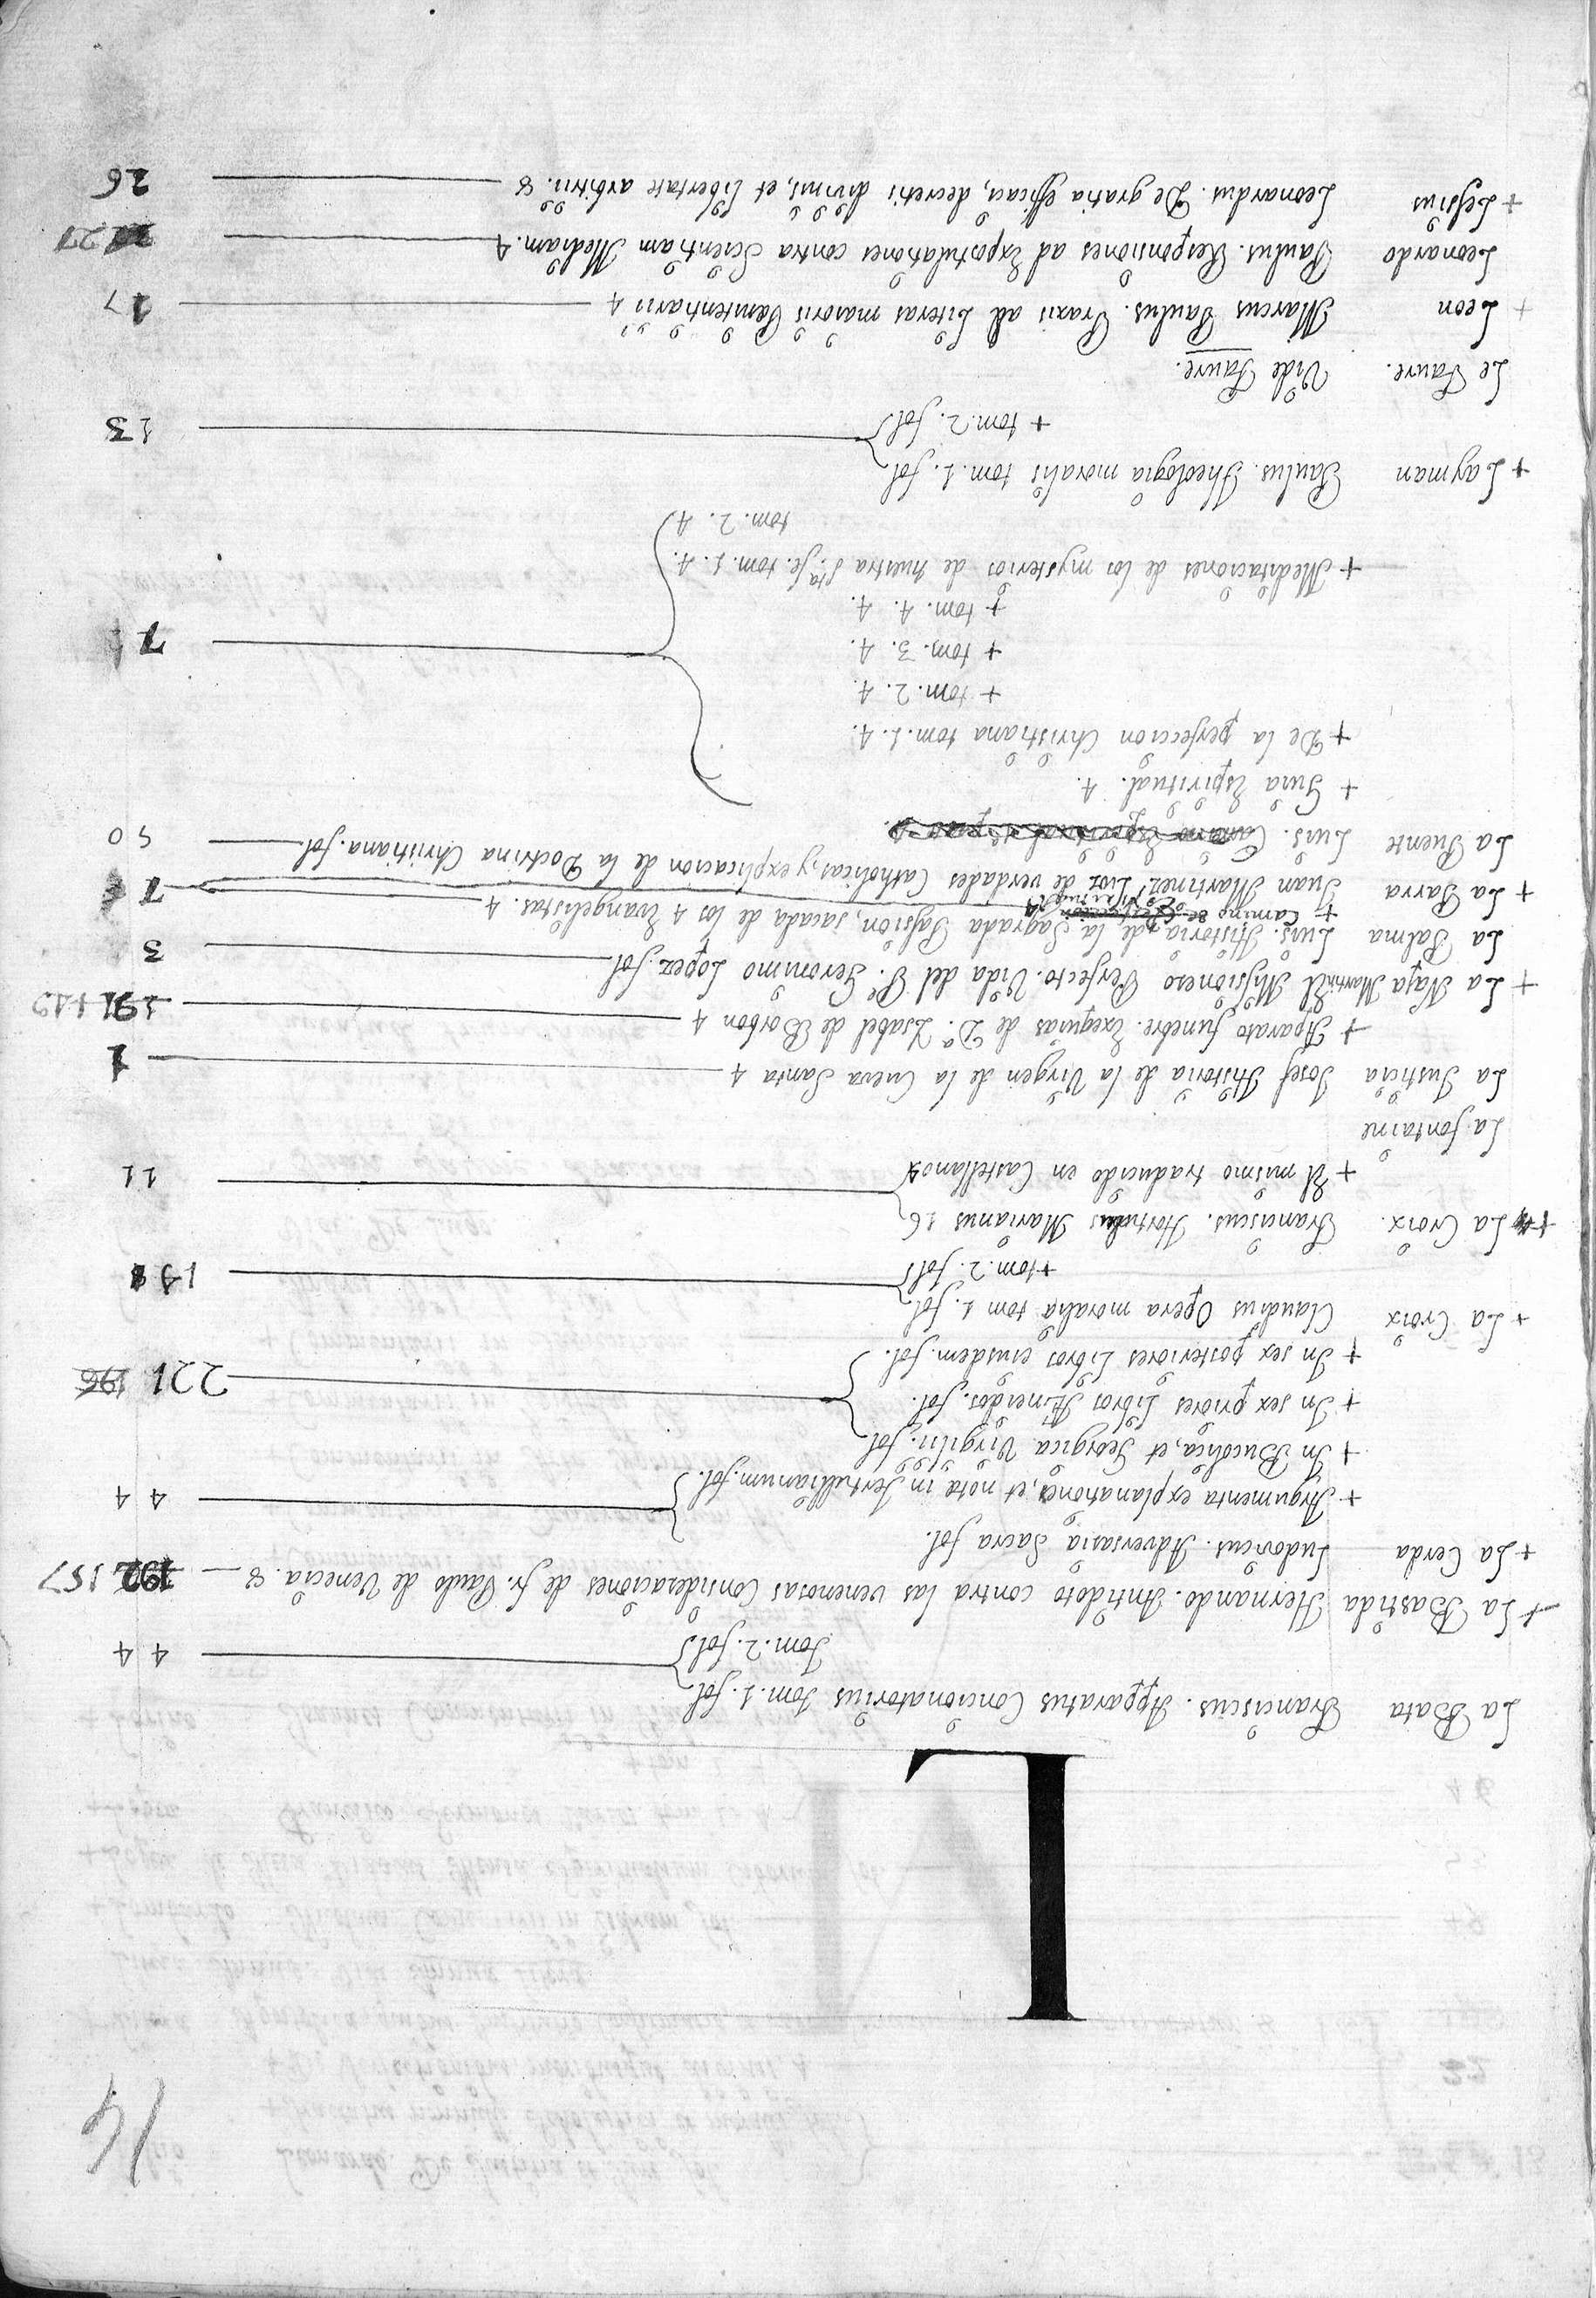 14
L
La Bata Franciscus. Apparatus Concionatorius Tom. 1. fol.
Tom. 2. fol. 4 4
+ La Bastida Hernando. Antidoto contra las venenosas Consideraciones de fr. Paulo de Venecia. 8. 157
+ La Cerda Ludovicus. Adversaria Sacra fol.
+ Argumenta explanationes, et notæ in Tertullianum. fol. 4 4
+ In Bucolica, et Georgica Virgilii. fol.
+ In sex priores Libros Æneidos. fol. 221 196
+ In sex posteriores Libros eiusdem. fol.
+ La Croix Claudius Opera moralia tom 1. fol.
+ tom. 2. fol.
+ La Croix. Franciscus. Hortulus Marianus 16
+ El mismo traducido en Castellano 11
La fontaine
La Justicia Josef Historia de la Virgen de la Cueva Santa 4 1
+ Aparato funebre Exequias de Dª. Isabel de Borbon 4
+ La Naja Martin El Missionero Perfecto. Vida del Pe. Geronimo Lopez. fol. 3
La Palma Luis. Historia de la Sagrada Passion, sacada de los 4 Evangelistas. 4. 7
+ Camino
+ La Parra Juan Martinez Luz de verdades Catholicas, y explicacion de la Doctrina Christiana. fol. 50
La Puente Luis.
+ Guia Espiritual. 4.
+ De la perfeccion Christiana tom. 1. 4.
+ tom. 2. 4.
+ tom. 3. 4. 7
+ tom. 4. 4.
+ Meditaciones de los mysterios de nuestra Sta. fe. tom. 1. 4.
tom. 2. 4
+ Layman Paulus. Theologia moralis tom. 1. fol.
+ tom. 2. fol. 13
Le Faure. Vide Faure.
+ Leon Marcus Paulus. Praxis ad Literas maioris Pœnitentiarii 4 17
Leonardo Paulus. Responsiones ad Expostulationes contra Scientiam Mediam. 4 27
+ Lessius Leonardus. De gratia efficaci, decretis divinis, et Libertate arbitrii. 8 26